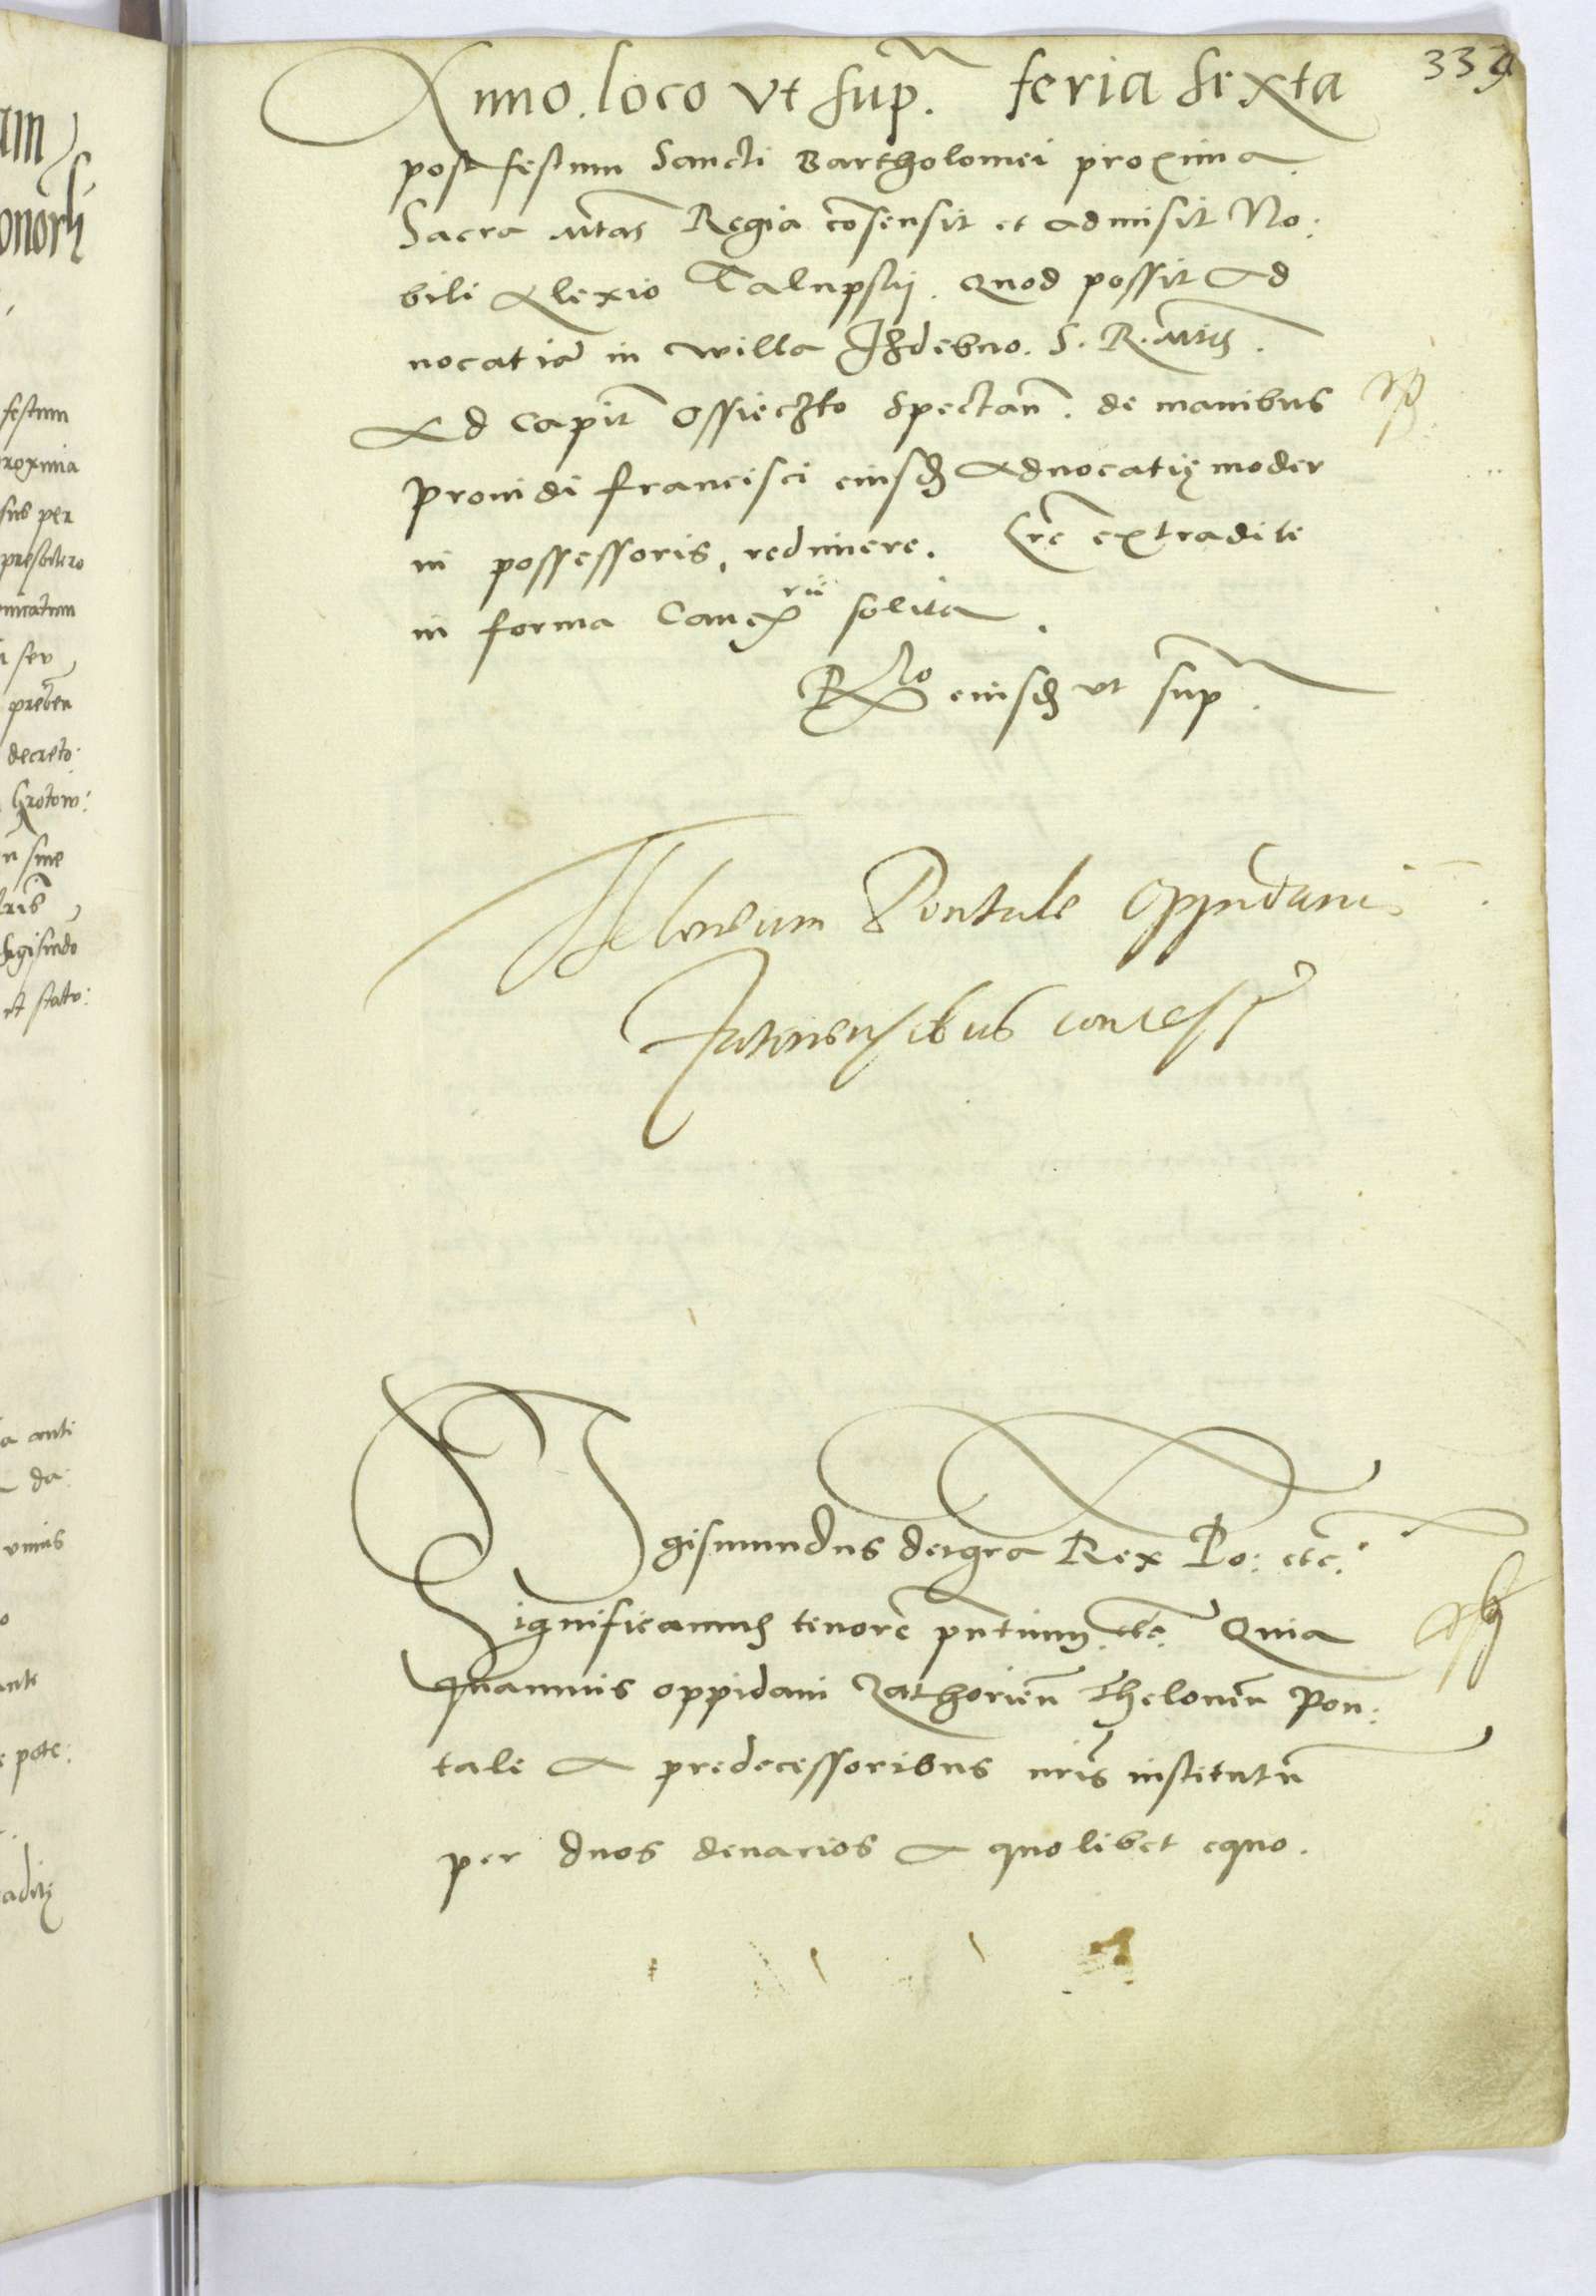 333
Anno. loco vt sup. feria sexta
post festum Sancti Bartholomei proxima.
Sacra Mtas Regia cosensit et admisit No:
bili Alexio quod possit Ad
uocatia in willa S. R. Mtis.
Ad Capit Ossieczko Spectan. de manibus
prouidi francisci eiusd Aduocatię moder
ni possessoris, redimere. Lre extradite
in forma Canc rii solita.
Rlo eiusd vt sup.
Teloneum Pontale Oppidanis
concess
Sigismundus dei gra Rex Po: etc.
Significamus tenore pntium. etc. Quia
quamuis oppidani Zathorien Theloneu Pon:
tale A predecessoribus nris institutu
per duos denarios A quolibet equo.
festum
proxima
sus per
presbitero
decreto.
sine
et statu:
anti
da:
vnius
ante